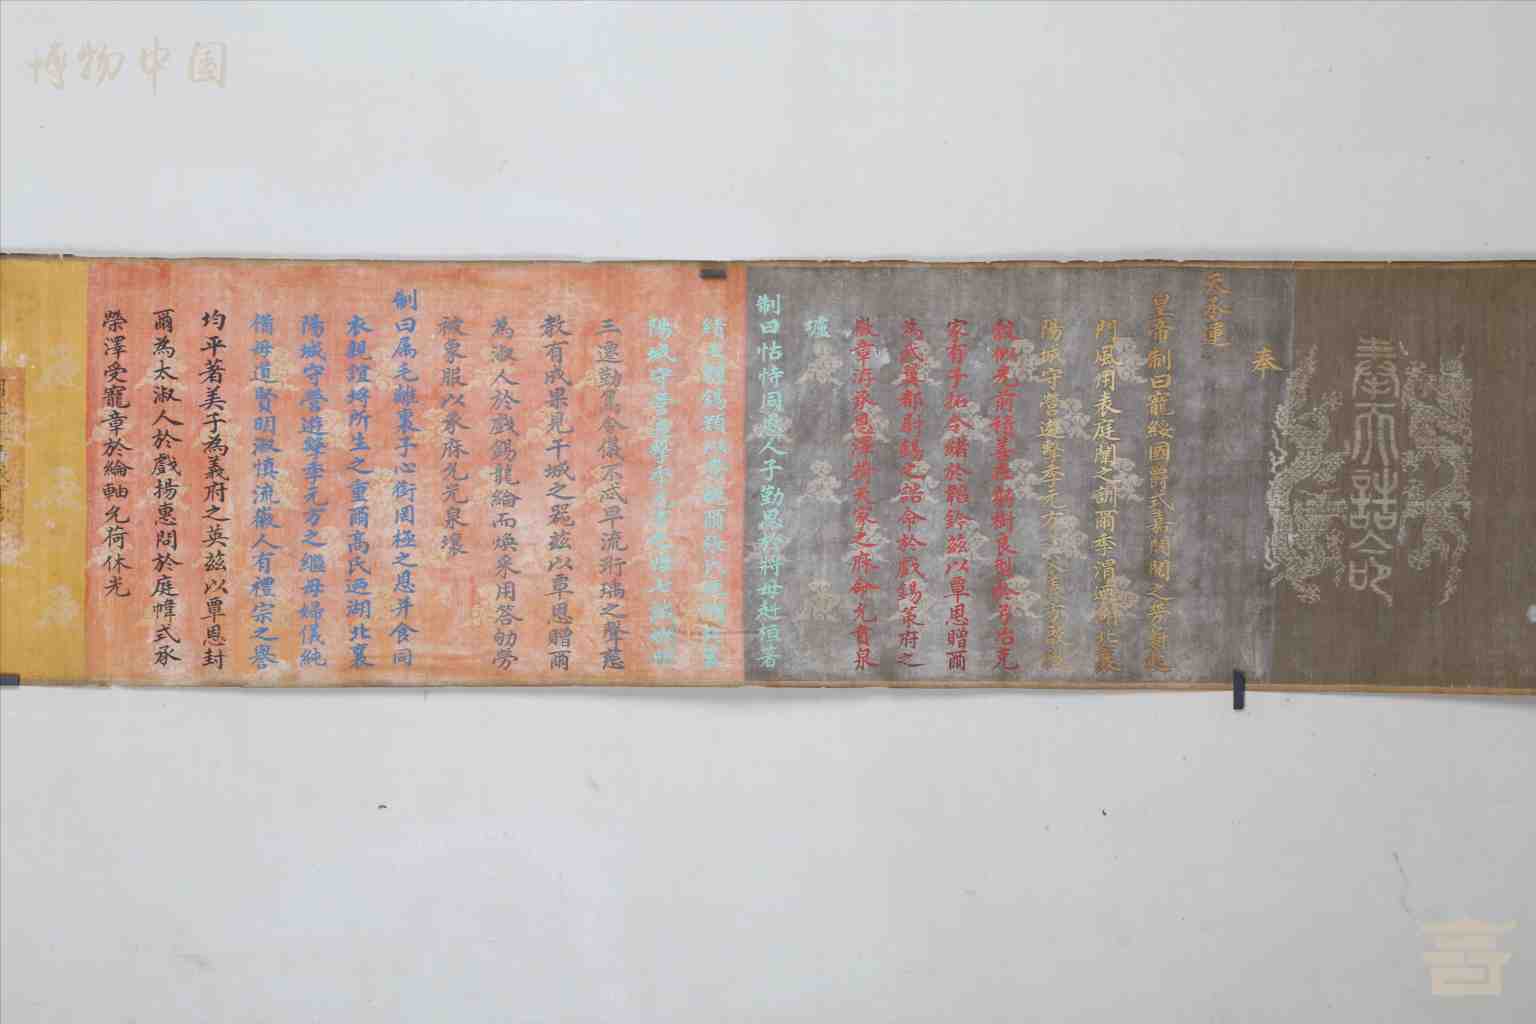 博物中国
奉天誥命
奉
天承運
皇帝制曰寵綏國爵式嘉閥閱之勞蔚起
門風用表庭闈之訓爾李渭迺湖北襄
陽城守營遊擊李元方之父義方啟後
穀似光前積善在躬樹良型於弓冶克
家有子拓令緒於韜鈐茲以覃恩贈爾
為武翼都尉錫之誥命於戲錫策府之
徽章洊承恩澤荷天家之庥命允賁泉
壚
制曰怙恃同恩人子勤思於將母赳桓著
績王朝錫類以榮親爾張氏迺湖北襄
陽城守營遊擊李元方之母七誡嫻明
三遷勤篤令儀不忒早流珩瑀之聲慈
教有成果見干城之器茲以覃恩贈爾
為淑人於戲錫龍綸而煥采用答劬勞
被象服以承庥允光泉壤
制曰属毛離裏子心銜罔極之恩并食同
衣親誼埒所生之重爾高氏迺湖北襄
陽城守營遊擊李元方之繼母婦儀純
備母道賢明淑慎流徽人有禮宗之譽
均平著美子為義府之英茲以覃恩封
爾為太淑人於戲揚惠問於庭幃式承
榮澤受寵章於綸軸允荷休光